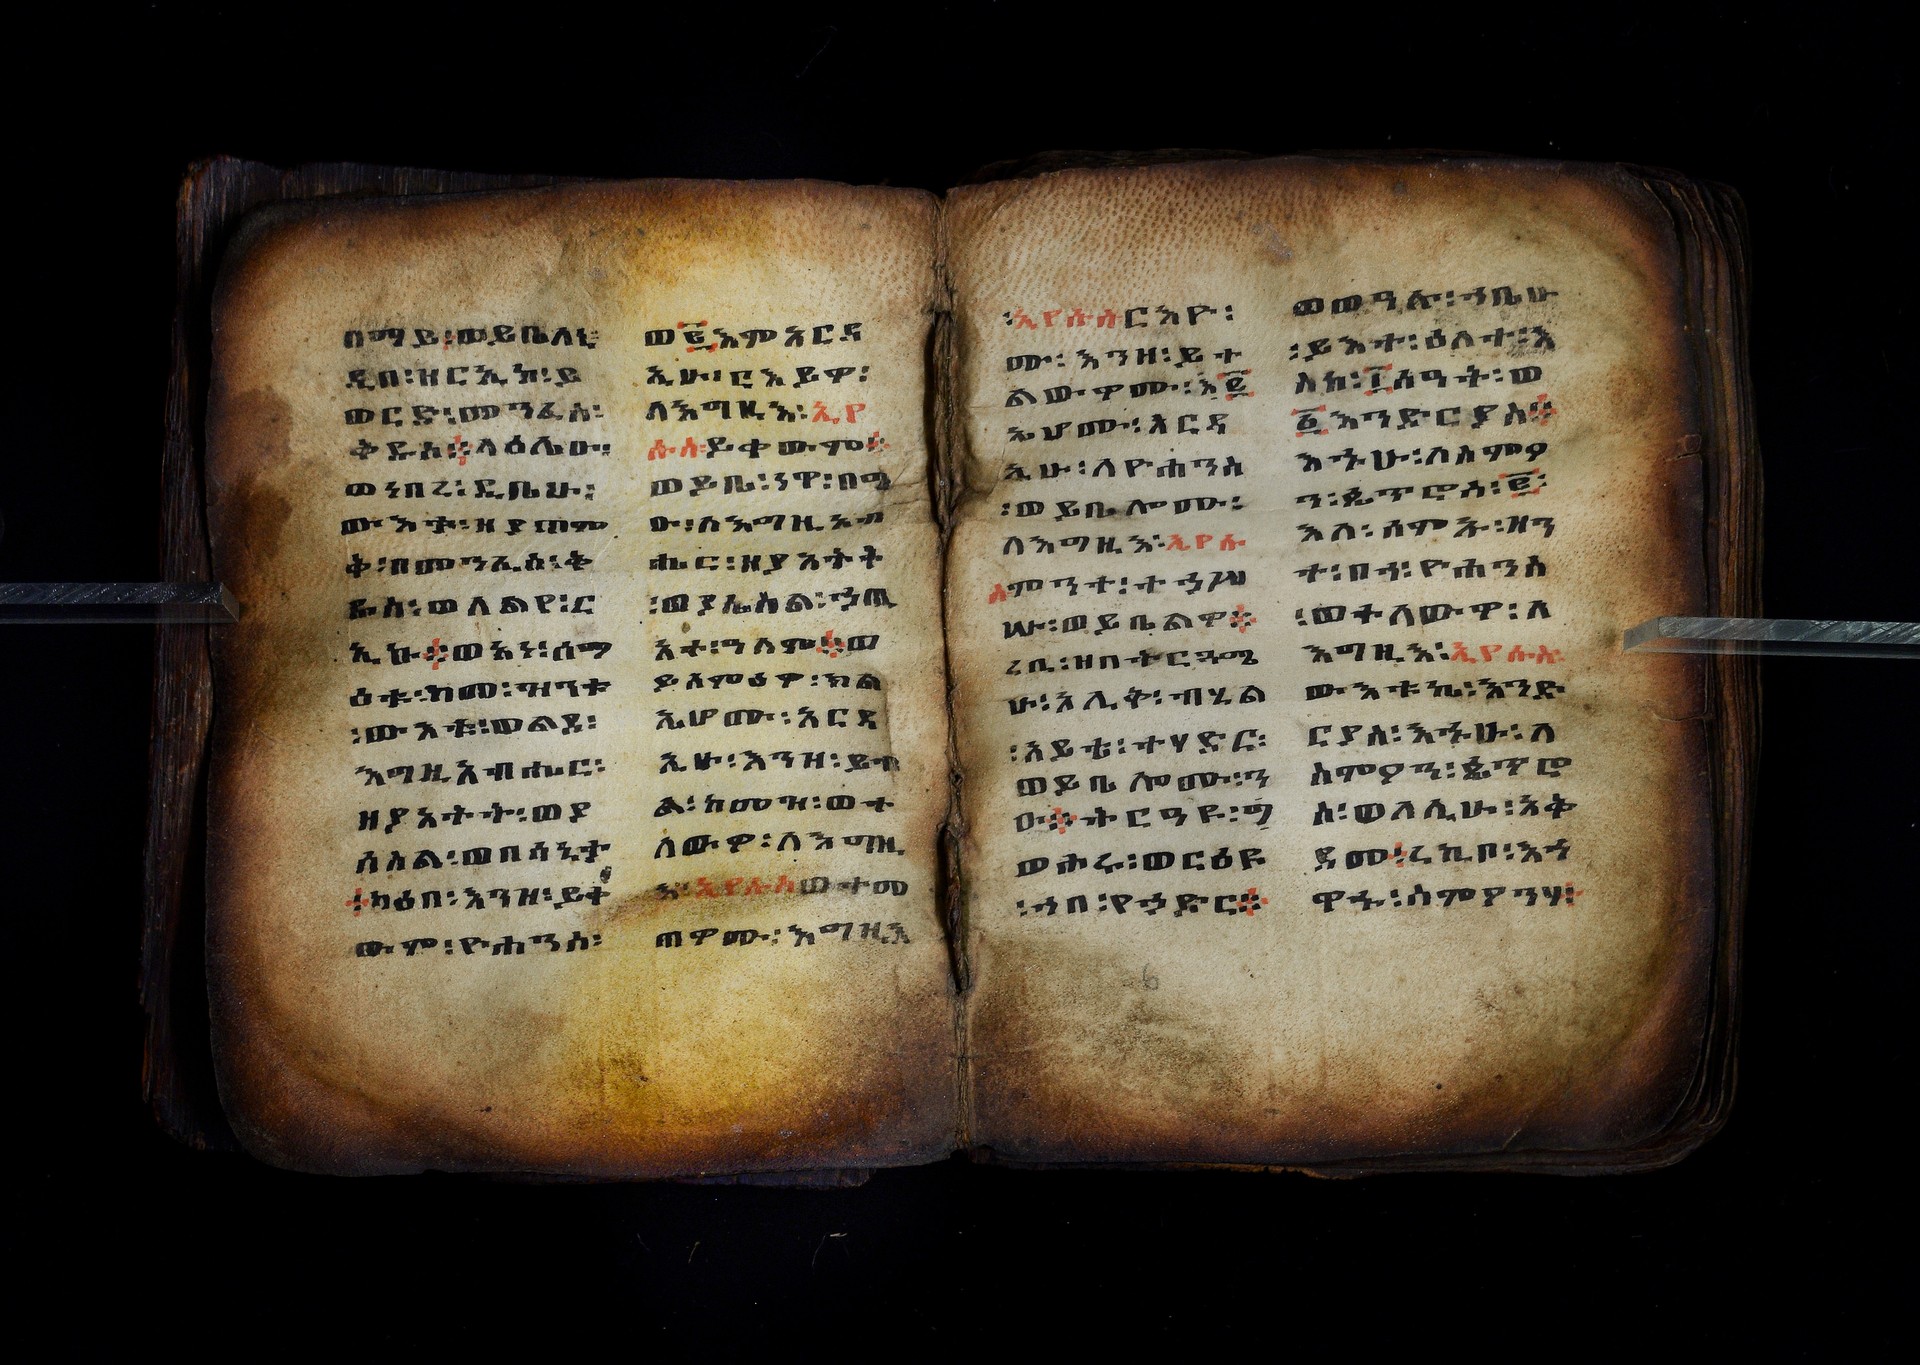 በማይ፡ወይቤለኒ፡
ዲበ፡ዝርኢከ፡ይ
ወርድ፡መንፈስ፡
ቅዱስ፨ላዕሌሁ፡
ወነበረ፡ዲቤሁ፡
ውእቱ፡ዘያጠም
ቅ፡በመንፈስ፡ቅ
ዱስ፡ወለልየ፡ር
ኢኩ፨ወአነ፡ሰማ
ዕቱ፡ከመ፡ዝንቱ
፡ውእቱ፡ወልደ፡
እግዚአብሔር፡
ዘያአትት፡ወያ
ሰስል፡ወበሳኒት
፡ካዕበ፡እንዘ፡ይቀ
ውም፡ዮሐንስ፡
ወ፪እምአርዳ
ኢሁ፡ርእይዎ፡
ለእግዚእ፡ኢየ
ሱስ፡ይቀውም፨
ወይቤ፡ነዋ፡በግ
ዑ፡ለእግዚአብ
ሔር፡ዘያአትት
፡ወያሴስል፡ኃጢ
አተ፡ዓለም፨ወ
ይሰምዕዎ፡ክል
ኤሆሙ፡አርዳ
ኢሁ፡እንዘ፡ይብ
ል፡ከመዝ፡ወተ
ለውዎ፡ለእግዚ
እ፡ኢየሱስ፡ወተመ
ጠዎሙ፡እግዚእ
፡ኢየሱስ፡ርእዮ፡
ሙ፡እንዘ፡ይተ
ልውዎሙ፡እ፪
ኤሆሙ፡አርዳ
ኢሁ፡ለዮሐንስ
፡ወይቤሎሙ፡
ለእግዚእ፡ኢየሱ
ስ፡ምንተ፡ተኃሥ
ሡ፡ወይቤልዎ፨
ረቢ፡ዘበትርጓሜ
ሁ፡ሊቅ፡ብሂል
፡አይቴ፡ተሃድር፡
ወይቤሎሙ፡ን
ዑ፨ትርዓዩ፡ወ
ሖሩ፡ወርዕዩ
፡ኀበ፡የኃድር፨
ወወዓሉ፡ኀቤሁ
፡ይእተ፡ዕለተ፡እ
ስከ፡፲ሰዓት፡ወ
፩እንድርያስ፨
እኁሁ፡ለስምዖ
ን፡ጴጥሮስ፡፪፡
እለ፡ሰምዑ፡ዘን
ተ፡በኀ፡ዮሐንስ
፡ወተለውዎ፡ለ
እግዚእ፡ኢየሱስ፡
ውእቱኬ፡እንድ
ርያስ፡እኁሁ፡ለ
ስምዖን፡ጴጥሮ
ስ፡ወለሊሁ፡አቅ
ደመ፡ረኪቦ፡እኁ
ዋሁ፡ስምዖንሃ፡